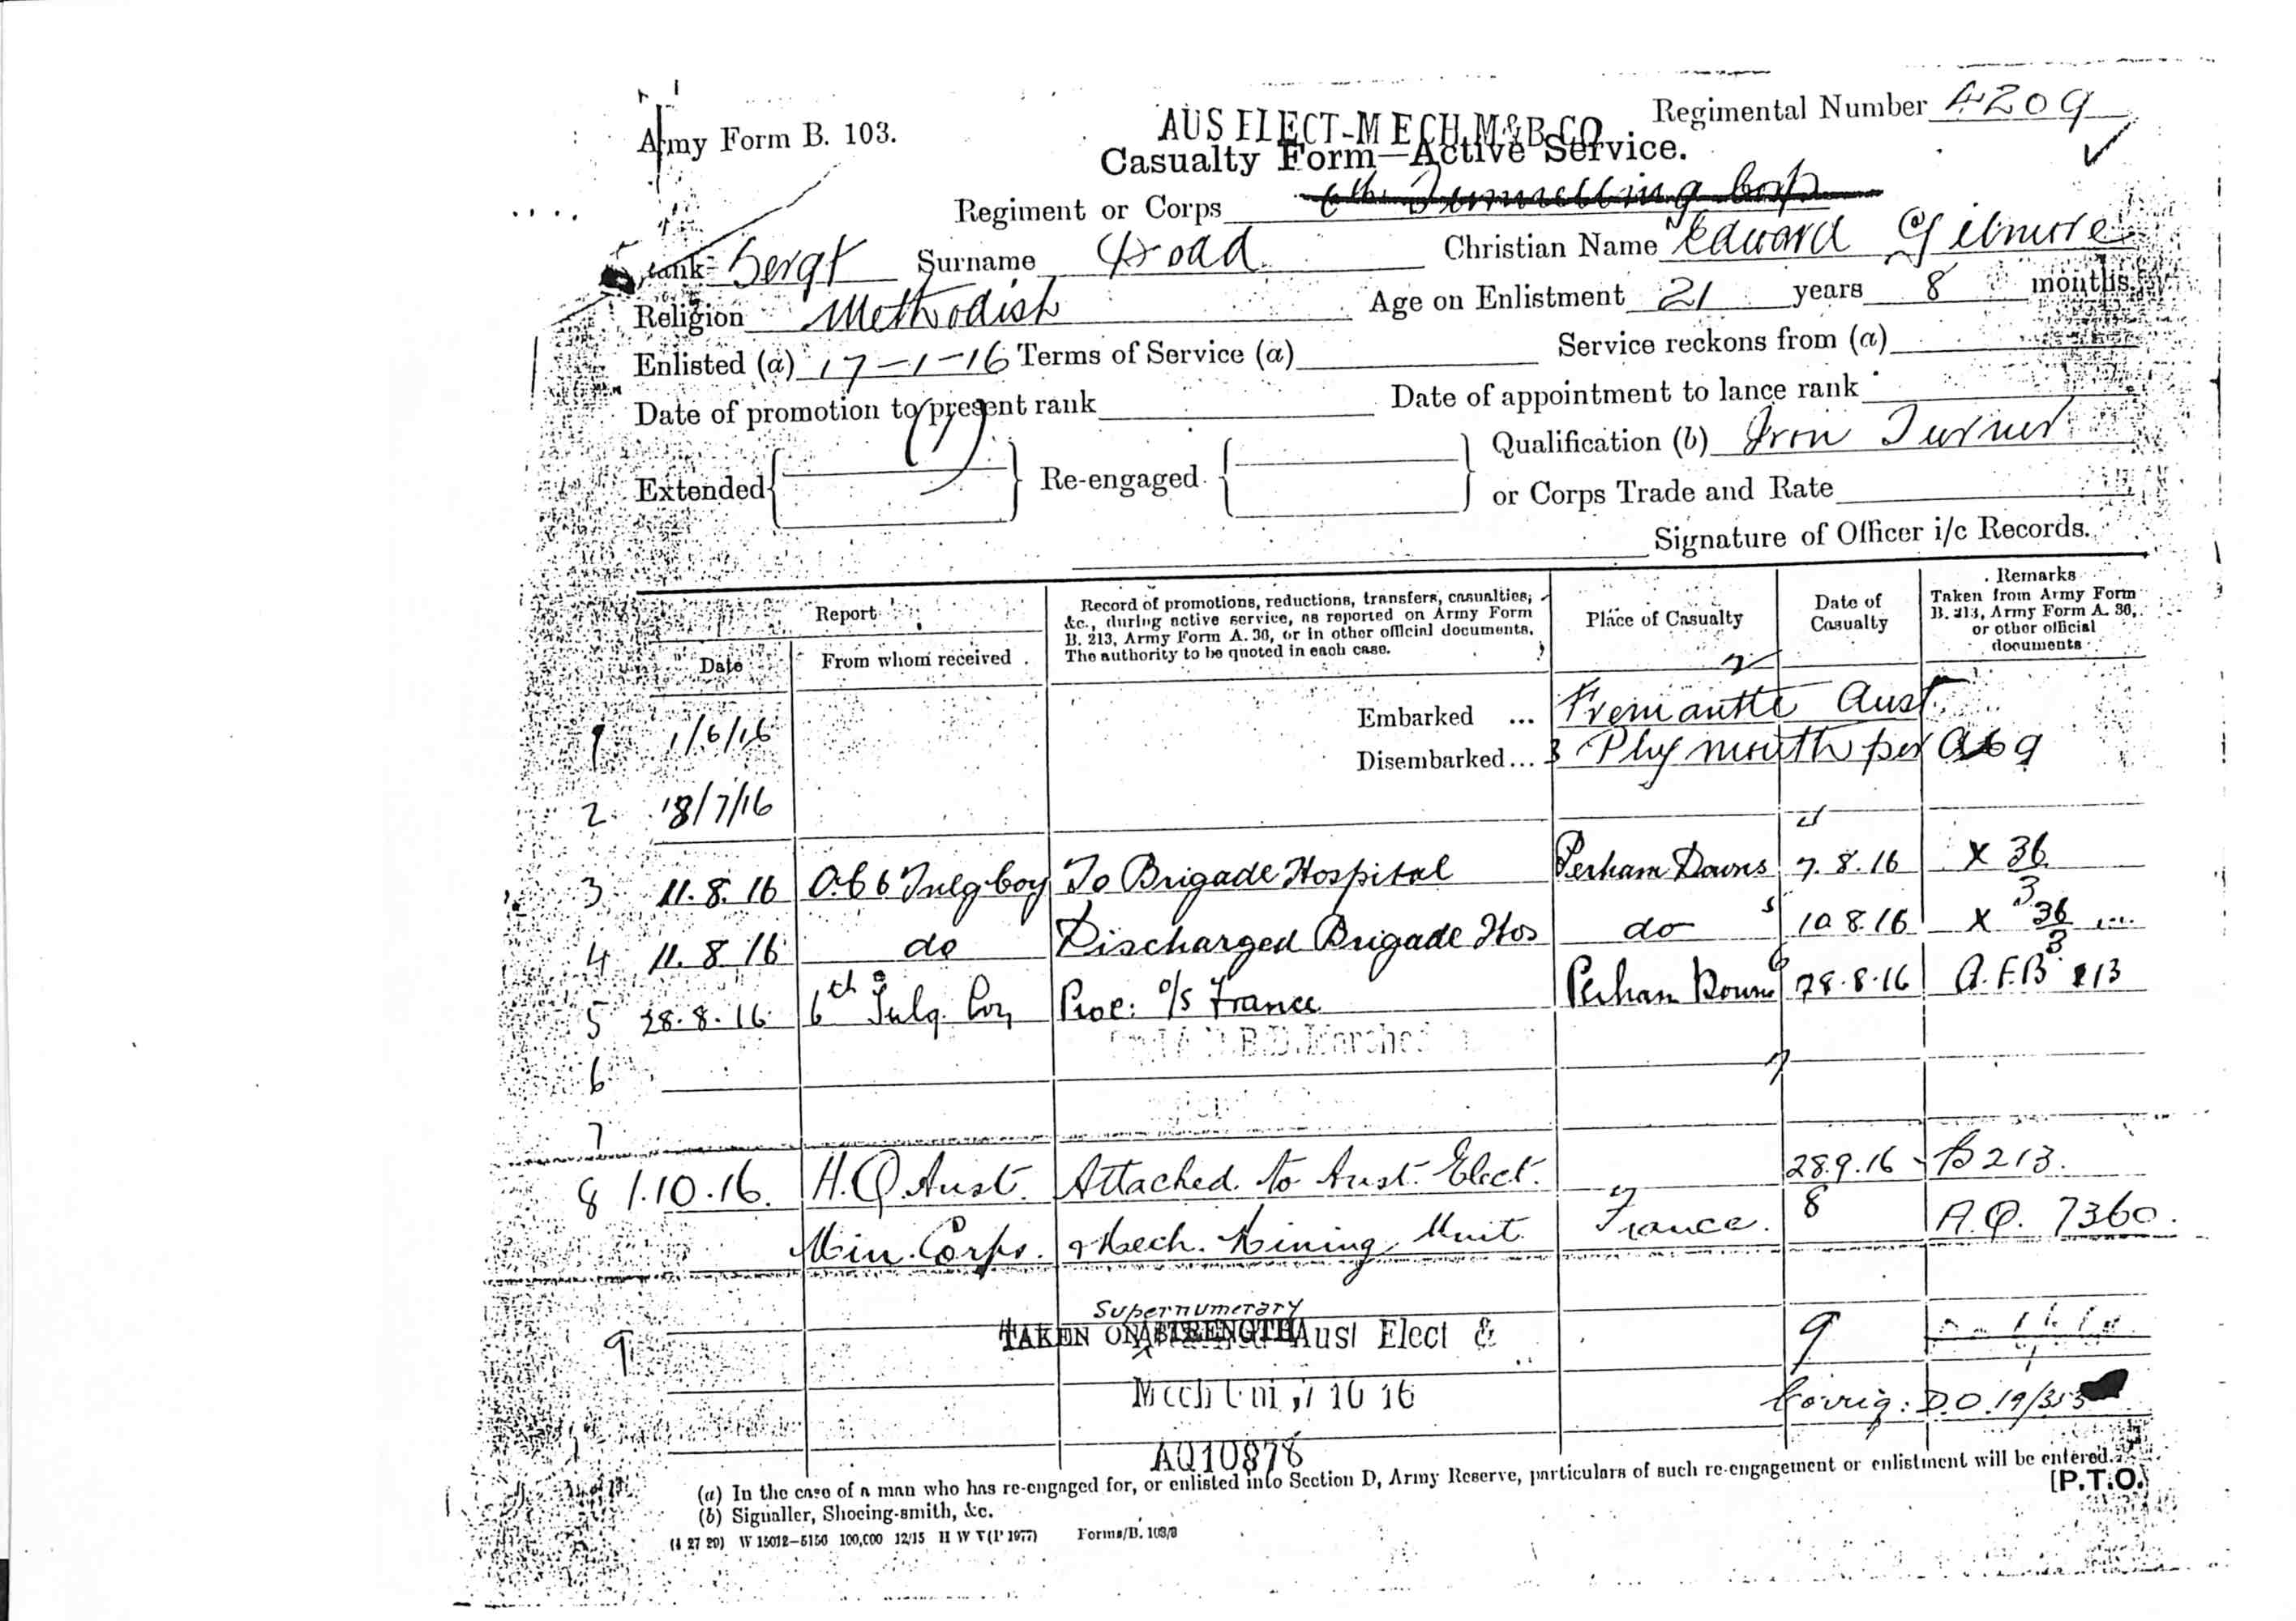 Regimental Number 4209
Army Form B. 103.
AUS ELECT-MECH.M&B.CO
Casualty Form—Active Service.
Regiment or Corps 6th Tunnelling Corp
Rank Sergt Surname Christian Name Edward Gilmore
Religion Methodist Age on Enlistment 21 years 8 months
Enlisted (a) 17-1-16 Terms of Service (a) Service reckons from (a)
Date of promotion to present rank Date of appointment to lance rank
Extended Re-engaged Qualification (b) Iron Turner
or Corps Trade and Rate
Signature of Officer i/c Records.
Report
Date From whom received
Record of promotions, reductions, transfers, casualties,
&c., during active service, as reported on Army Form
B. 213, Army Form A. 36, or in other official documents.
The authority to be quoted in each case.
Place of Casualty
Date of
Casualty
Remarks
Taken from Army Form
B. 213, Army Form A. 36,
or other official
documents
2
1 1/6/16 Embarked ... Fremantle Aust.
Disembarked... 3 Plymouth per
2 18/7/16
4
3 11.8.16 O.C 6 Tulg Coy To Brigade Hospital Perham Downs 7.8.16 X 36
3
4 11.8.16 do Discharged Brigade Hos do 5 10.8.16 X 36
3
5 28.8.16 6th Tulg. Coy Proc: o/s France Perham Downs 6 28.8.16 A.F.B 213
Marched
6 7
7
8 1.10.16. H.Q. Aust. Attached to Aust. Elect. 28.9.16 B213.
Min. Corps. & Mech. Mining Unit France. 8 A.Q. 7360.
Supernumerary
9 TAKEN ON STRENGTH Aust Elect & 9
Mech 10 16 Corrig: D.O. 19/353
AQ10878
(a) In the case of a man who has re-engaged for, or enlisted into Section D, Army Reserve, particulars of such re-engagement or enlistment will be entered.
(b) Signaller, Shoeing-smith, &c. [P.T.O.
(4 27 20) W 15012—5150 100,000 12/15 H W V (P 1977) Forms/B. 103/3